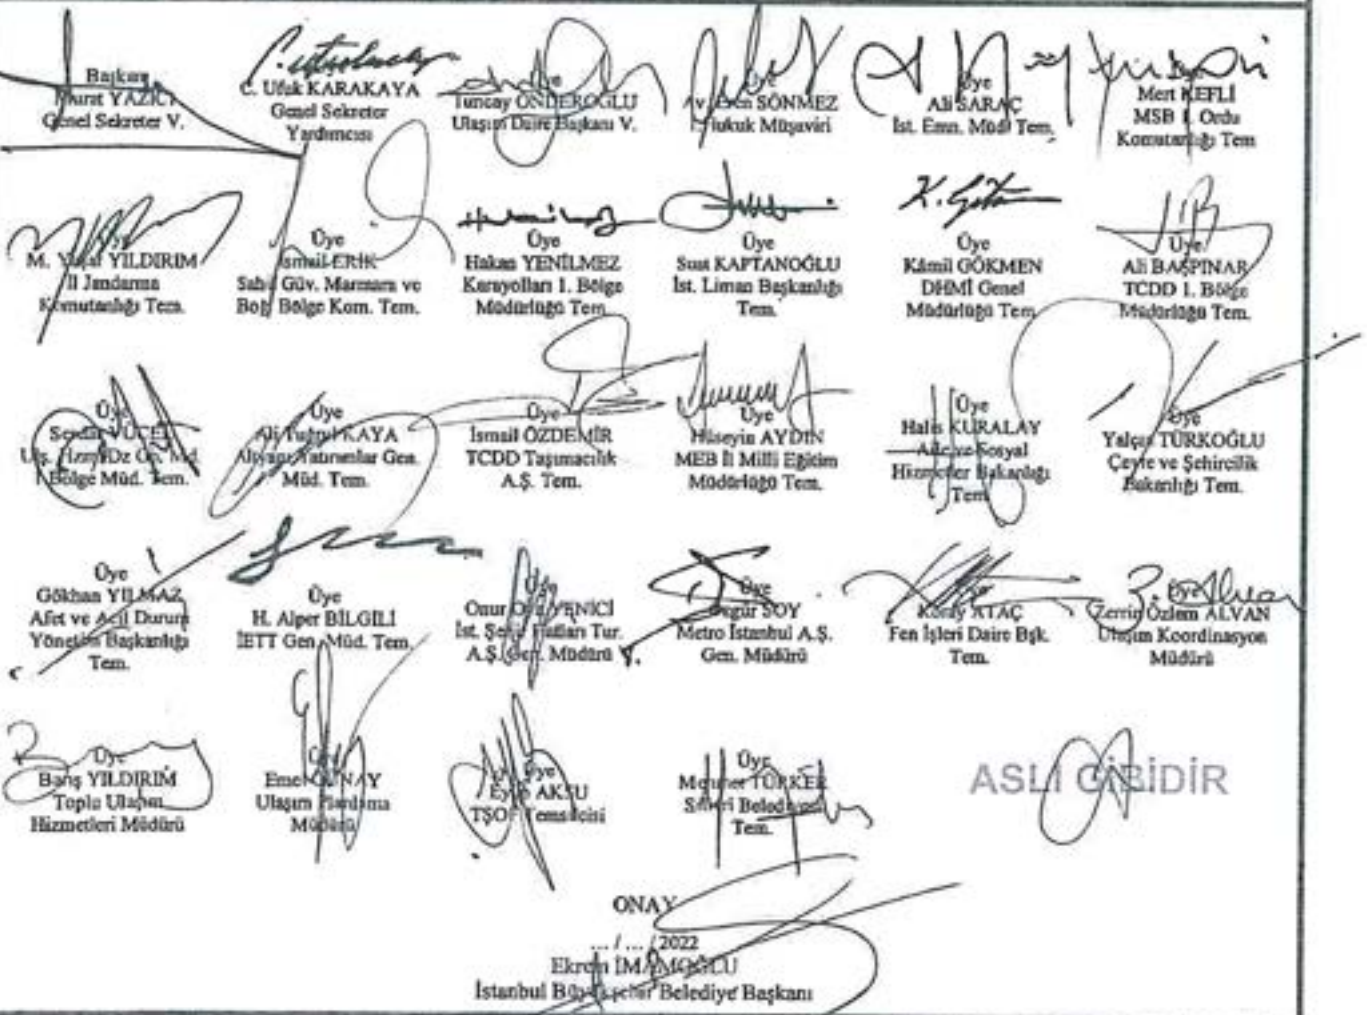 Başkan
Murat YAZICI
Genel Sekreter V.
C. Ufuk KARAKAYA
Genel Sekreter
Yardımcısı
Üye
Tuncay ÖNDEROĞLU
Ulaşım Daire Başkanı V.
Üye
Av. Eren SÖNMEZ
I. Hukuk Müşaviri
Üye
Ali SARAÇ
İst. Emn. Müd. Tem.
Mert KEFLİ
MSB 1. Ordu
Komutanlığı Tem
Üye
M. YILDIRIM
İl Jandarma
Komutanlığı Tem.
Üye
İsmail ERİK
Sahil Güv. Marmara ve
Boğ Bölge Kom. Tem.
Üye
Hakan YENİLMEZ
Karayolları 1. Bölge
Müdürlüğü Tem
Üye
Suat KAPTANOĞLU
İst. Liman Başkanlığı
Tem.
K. Gökmen
Üye
Kâmil GÖKMEN
DHMİ Genel
Müdürlüğü Tem
Üye
Ali BAŞPINAR
TCDD 1. Bölge
Müdürlüğü Tem.
Üye
Serdar YÜCEL
Ulş. Hzm. Dz Gn. Md.
I Bölge Müd. Tem.
Üye
Ali Tuğrul KAYA
Altyapı Yatırımlar Gen.
Müd. Tem.
Üye
İsmail ÖZDEMİR
TCDD Taşımacılık
A.Ş. Tem.
Üye
Hüseyin AYDIN
MEB İl Milli Eğitim
Müdürlüğü Tem.
Üye
Halis KURALAY
Aile ve Sosyal
Hizmetler Bakanlığı
Tem
Üye
Yalçın TÜRKOĞLU
Çevre ve Şehircilik
Bakanlığı Tem.
Üye
Gökhan YILMAZ
Afet ve Acil Durum
Yönetim Başkanlığı
Tem.
Üye
H. Alper BİLGİLİ
İETT Gen. Müd. Tem.
Üye
Onur YENİCİ
İst. Şehir Hatları Tur.
A.Ş. Gen. Müdürü V.
Üye
Özgür SOY
Metro İstanbul A.Ş.
Gen. Müdürü
Koray ATAÇ
Fen İşleri Daire Bşk.
Tem.
Üye
Zerrin Özlem ALVAN
Ulaşım Koordinasyon
Müdürü
Üye
Barış YILDIRIM
Toplu Ulaşım
Hizmetleri Müdürü
Üye
Emel GÜNAY
Ulaşım Planlama
Müdürü
Üye
Eyüp AKSU
TŞOF Temsilcisi
Üye
TÜRKER
Silivri Belediyesi
Tem.
ASLI GİBİDİR
ONAY
... / ... / 2022
Ekrem İMAMOĞLU
İstanbul Büyükşehir Belediye Başkanı